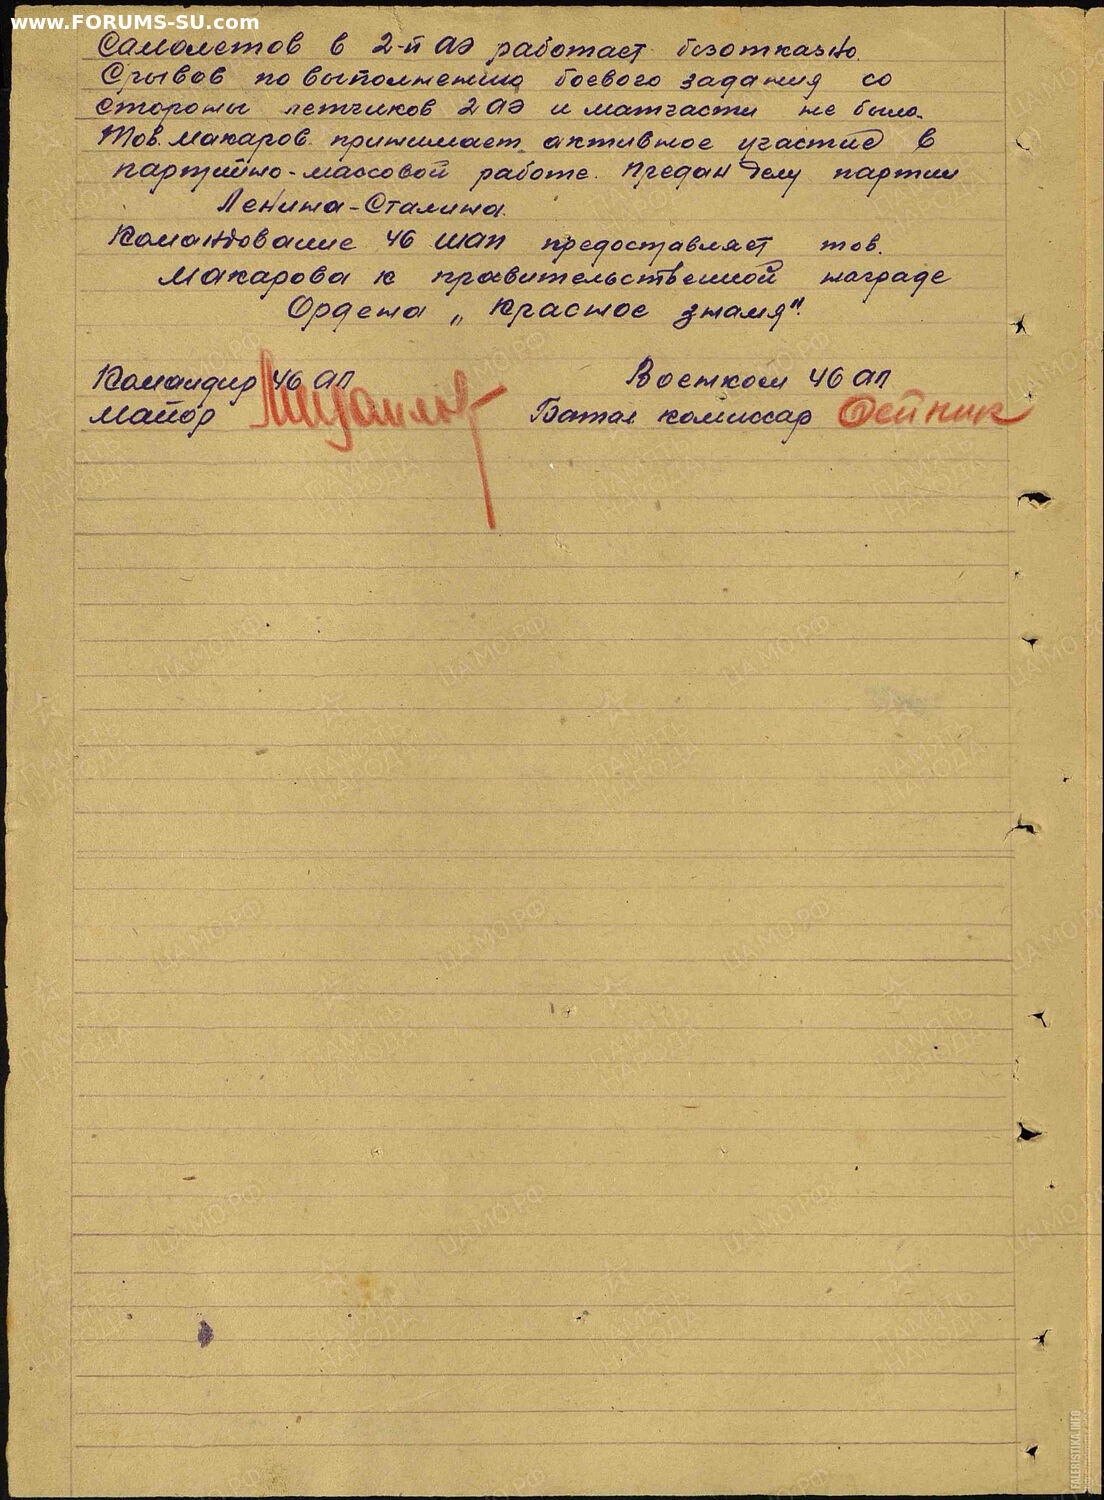 www.FORUMS-SU.com
Самолетов в 2-й АЭ работает безотказно.
Срывов по выполнению боевого задания со
стороны летчиков 2 АЭ и матчасти не было.
Тов. Макаров принимает активное участие в
партийно-массовой работе. Предан делу партии
Ленина-Сталина.
Командование 46 ШАП предоставляет тов.
Макарова к правительственной награде
Ордена „Красное знамя".
Командир 46 АП Военком 46 АП
Майор Батал комиссар Олейник
ПАМЯТЬ НАРОДА
ЦА МО РФ
FALERISTIKA.INFO